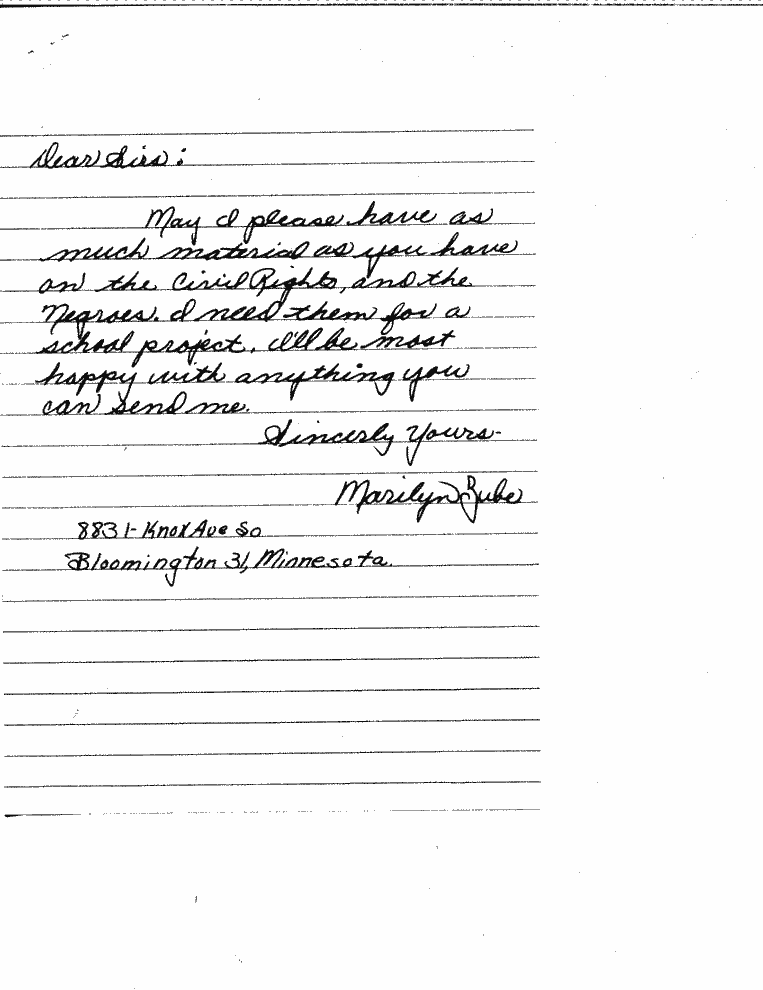 Dear Sirs:
May I please have as
much material as you have
on the Civil Rights, and the
Negroes. I need them for a
school project. I'll be most
happy with anything you
can send me.
Sincerly Yours-
Marilyn Zube
8831- Knox Ave So
Bloomington 31, Minnesota.